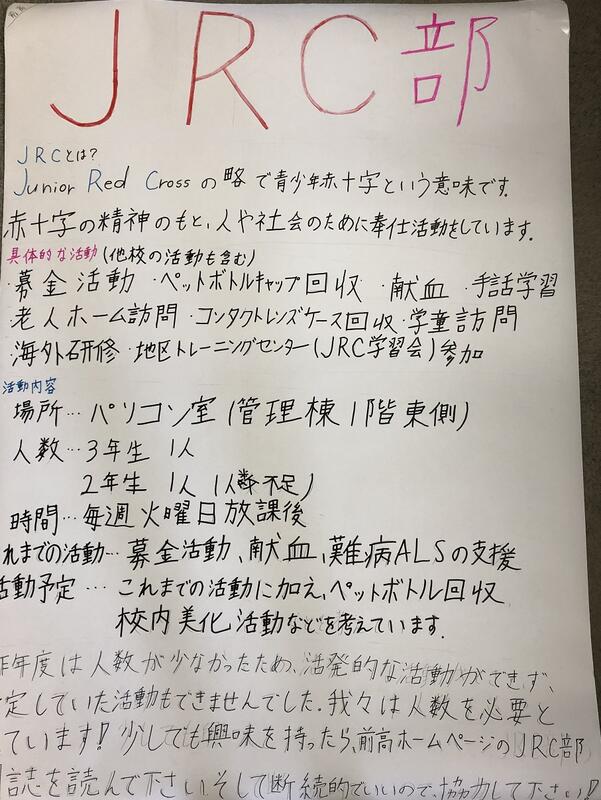 JRC部
JRCとは?
Junior Red Crossの略で青少年赤十字という意味です.
赤十字の精神のもと、人や社会のために奉仕活動をしています.
具体的な活動(他校の活動も含む)
・募金活動 ・ペットボトルキャップ回収 ・献血 ・手話学習
・老人ホーム訪問 ・コンタクトレンズケース回収 ・学童訪問
・海外研修 ・地区トレーニングセンター(JRC学習会)参加
活動内容
場所…パソコン室(管理棟1階東側)
人数…3年生 1人
2年生 1人(人数不足)
時間…毎週火曜日放課後
れまでの活動…募金活動、献血、難病ALSの支援
活動予定…これまでの活動に加え、ペットボトル回収
校内美化活動などを考えています.
昨年度は人数が少なかったため、活発的な活動ができず、
定していた活動もできませんでした.我々は人数を必要と
ています!少しでも興味を持ったら、前高ホームページのJRC部
誌を読んで下さい.そして断続的でいいので、協力して下さい!